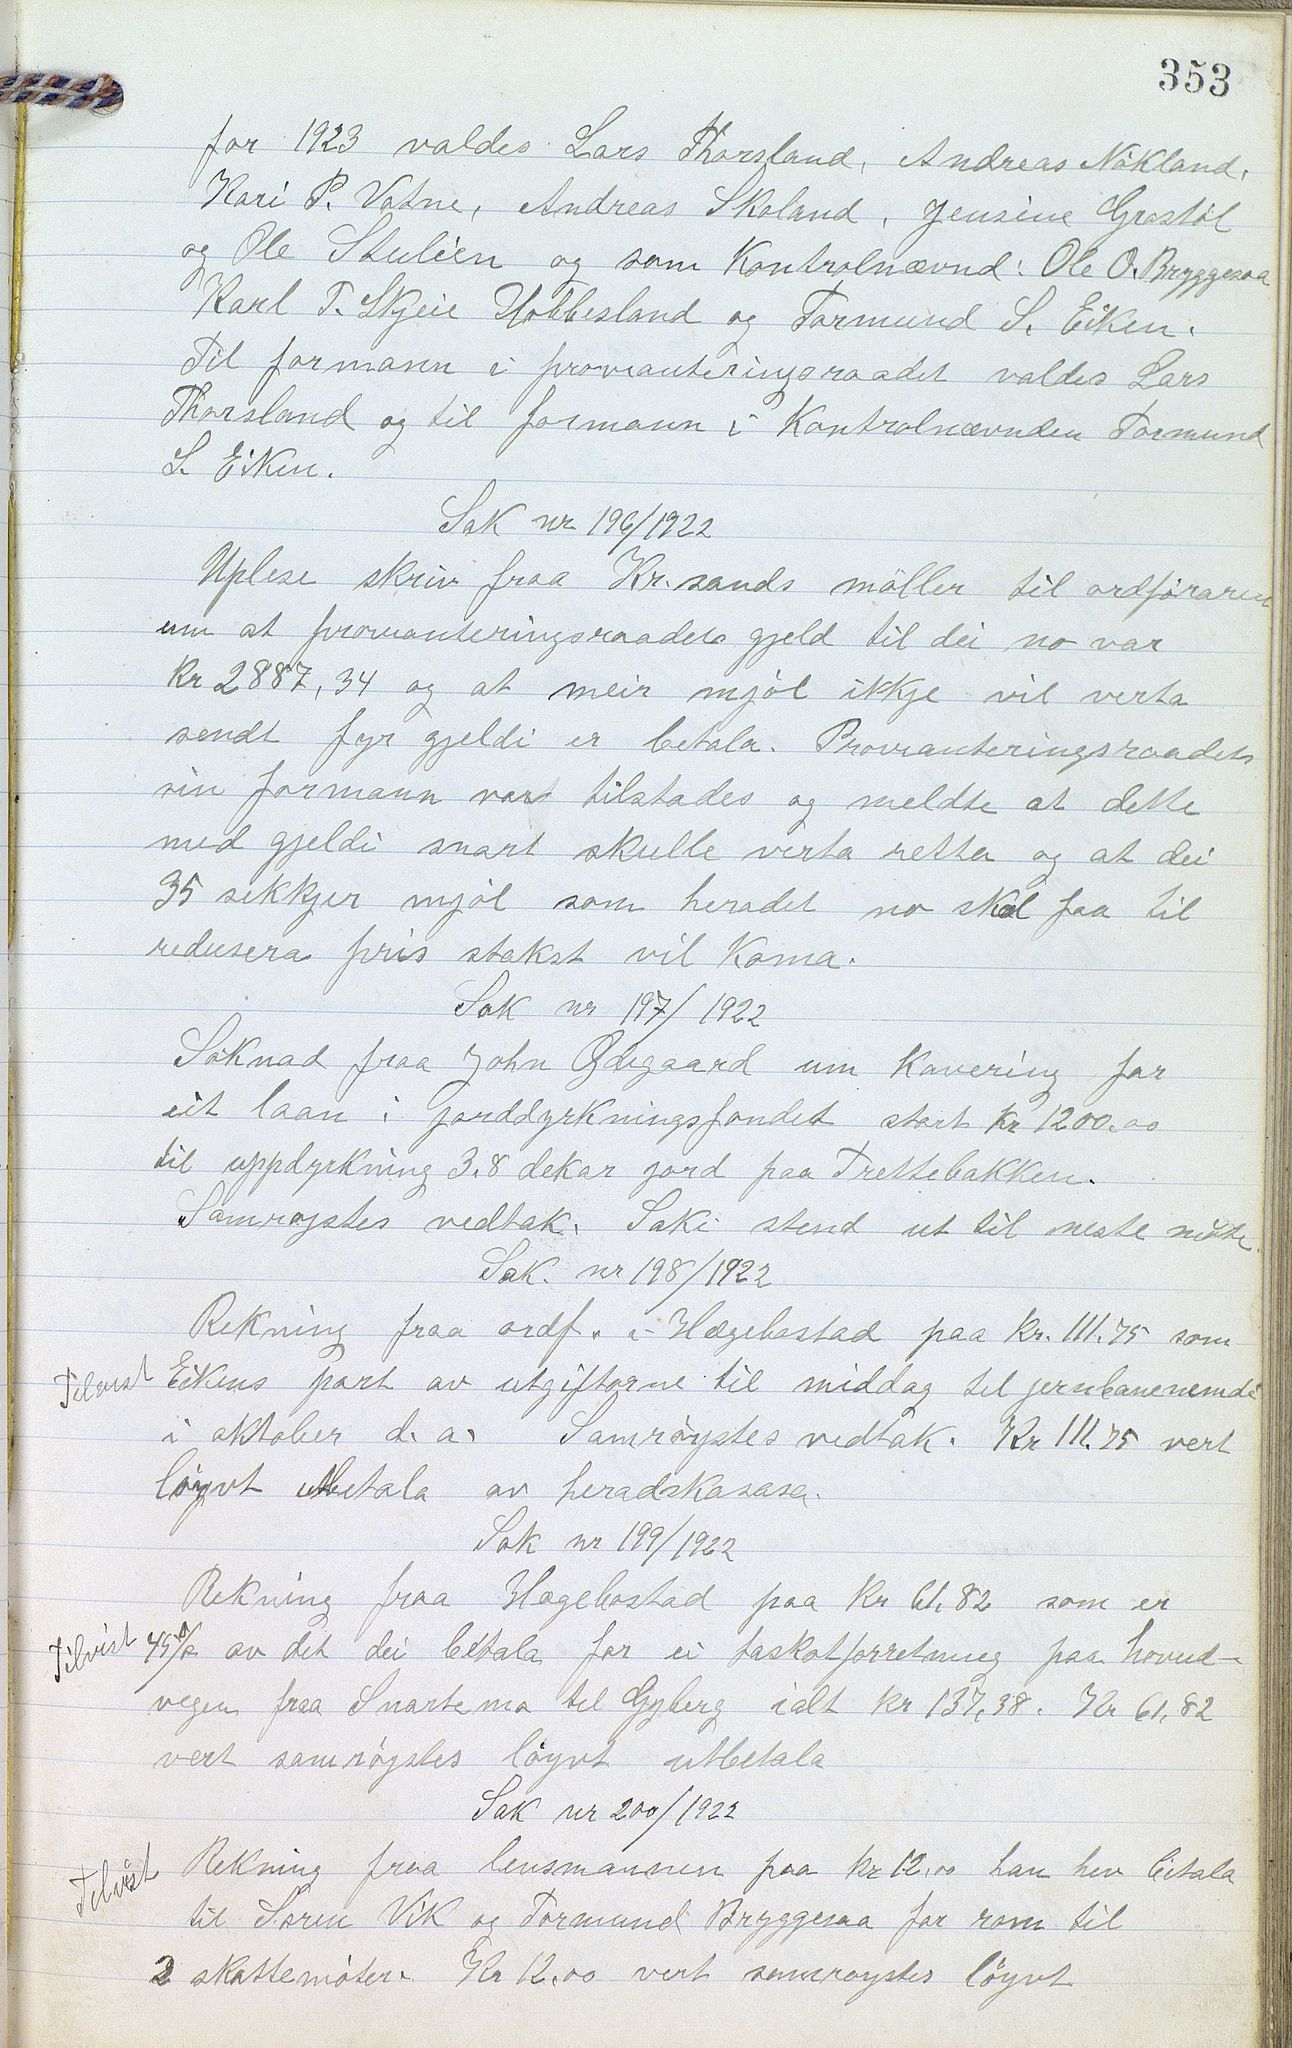 353
for 1923 valdes Lars Thorsland, Andreas Nökland,
Kari P. Vatne, Andreas Skoland, Jensine Grostöl
og Ole Stulien og som Kontrolnævnd: Ole O. Bryggesaa
Karl T. Skjeie Hobbesland og Tormund S. Eiken.
Til formann i provianteringsraadet valdes Lars
Thorsland og til formann i Kontrolnævnden Tormund
S. Eiken.
Sak nr 196/1922
Uplese skriv fraa Kr.sands möller til ordföraren
um at provianteringsraadets gjeld til dei no var
Kr 2887,34 og at meir mjöl ikkje vil verta
sendt fyr gjeldi er betala. Provianteringsraadets
sin formann var tilstades og meldte at dette
med gjeldi snart skulle verta retta og at dei
35 sekkjer mjöl som heradet no skal faa til
redusera pris stakst vil Koma.
Sak nr 197/1922
Söknad fraa John Ødegaard um Kavering for
eit laan i jorddyrkningsfondet stort Kr 1200.00
til uppdyrkning 3.8 dekar jord paa Trettebakken.
Samröystes vedtak. Saki stend ut til neste möte.
Sak. nr 198/1922
Rekning fraa ordf. i Hægebostad paa Kr. 111.75 som
Tilvist Eikens part av utgiftorne til middag til jernbanenemdi
i oktober d. a. Samröystes vedtak. Kr 111.75 vert
löyvt utbetala av heradskassa.
Sak nr 199/1922
Rekning fraa Hægebostad paa Kr 61,82 som er
Tilvist 45% av det dei betala for ei taskatforretning paa hovud-
vegen fraa Snartemo til Gyberg ialt Kr 137,38. Kr 61,82
vert samröystes löyvt utbetala
Sak nr 200/1922
Tilvist Rekning fraa lensmannen paa Kr 12,00 han hev betala
til Sören Vik og Tormund Bryggesaa for rom til
2 skattemöter. Kr 12.00 vert samröystes löyvt